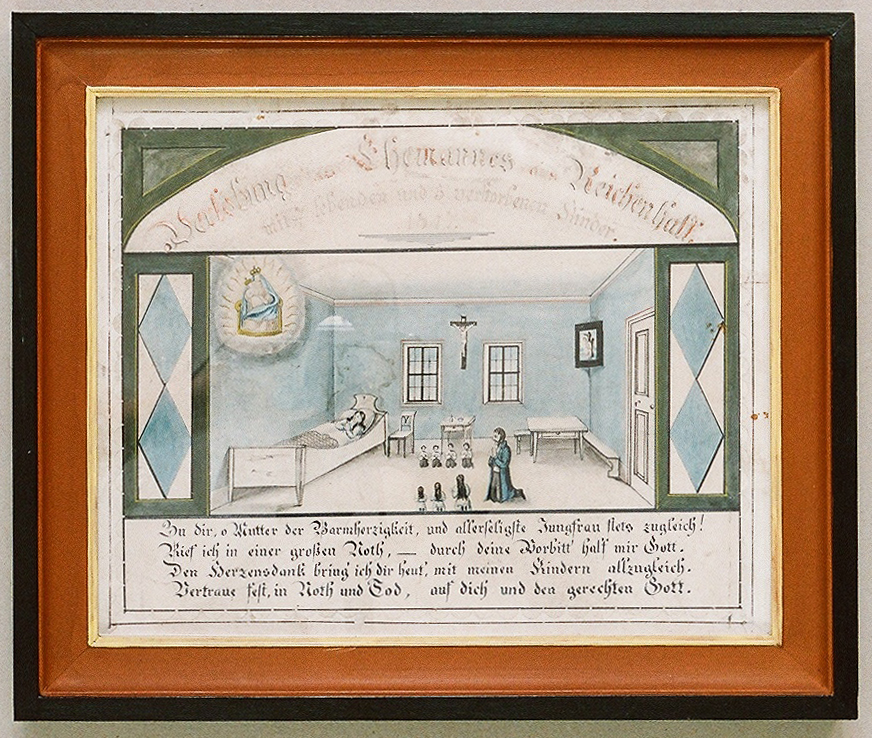 Verlobung Ehemannes Reichenhall.
mit lebenden und 3 verstorbenen Kinder.
Zu dir, o Mutter der Barmherzigkeit, und allerseligste Jungfrau stets zugleich!
Rief ich in einer großen Noth, — durch deine Vorbitt' half mir Gott.
Den Herzensdank bring' ich dir heut', mit meinen Kindern allzugleich.
Vertraue fest, in Noth und Tod, auf dich und den gerechten Gott.